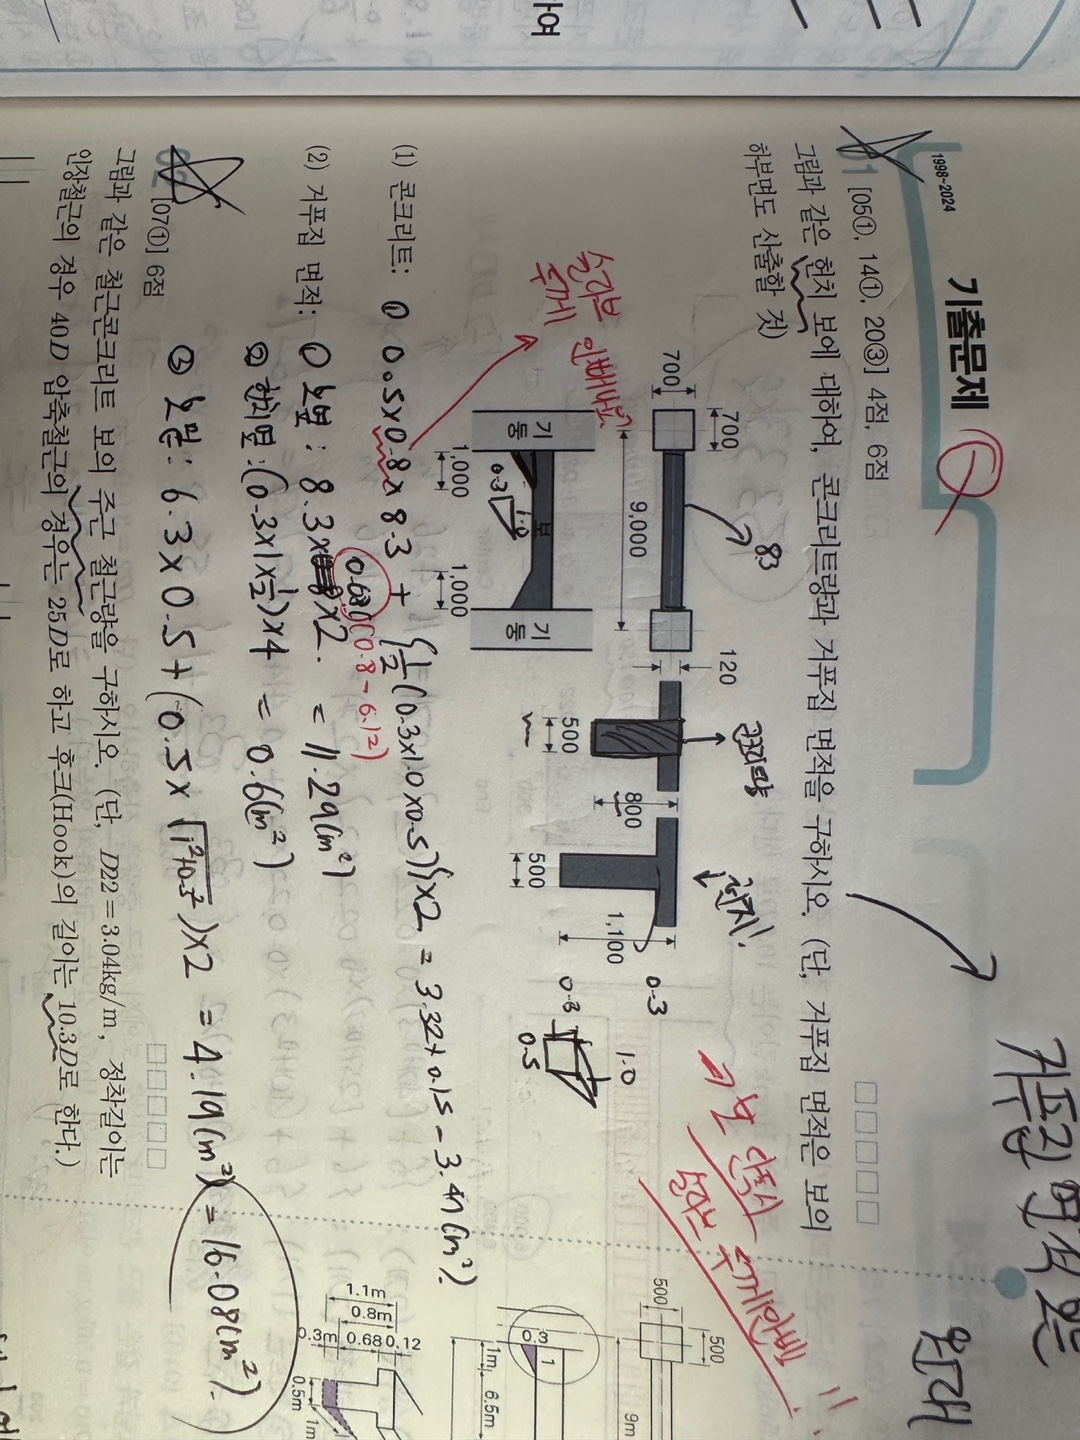 하여
1998~2024
기출문제
거푸집 면적 또는
01 [05①, 14①, 20③] 4점, 6점
□□□□□
그림과 같은 헌치 보에 대하여, 콘크리트량과 거푸집 면적을 구하시오. (단, 거푸집 면적은 보의
하부면도 산출할 것)
700
700
8.3
9,000
120
500
800
500
1,100
0.3
헌치!
기둥
보
기둥
1,000
1,000
0.3
1.0
0.3
1.0
0.5
슬라브
두께
안빼나요?
슬라브 두께
(1) 콘크리트: ① 0.5×0.8×8.3 + {½(0.3×1.0×0.5)}×2 = 3.32+0.15 = 3.47(m³).
0.68(0.8-0.12)
(2) 거푸집 면적: ① 보옆: 8.3××2. = 11.29(m²)
② 헌치옆: (0.3×1×½)×4 = 0.6(m²)
③ 보밑: 6.3×0.5+(0.5×√1²+0.3²)×2 = 4.19(m²) = 16.08(m²).
02 [07①] 6점
□□□□□
그림과 같은 철근콘크리트 보의 주근 철근량을 구하시오. (단, D22=3.04kg/m, 정착길이는
인장철근의 경우 40D 압축철근의 경우는 25D로 하고 후크(Hook)의 길이는 10.3D로 한다.)
500
500
9m
0.3
1
1m
6.5m
1.1m
0.8m
0.3m
0.68
0.12
0.5m
1m